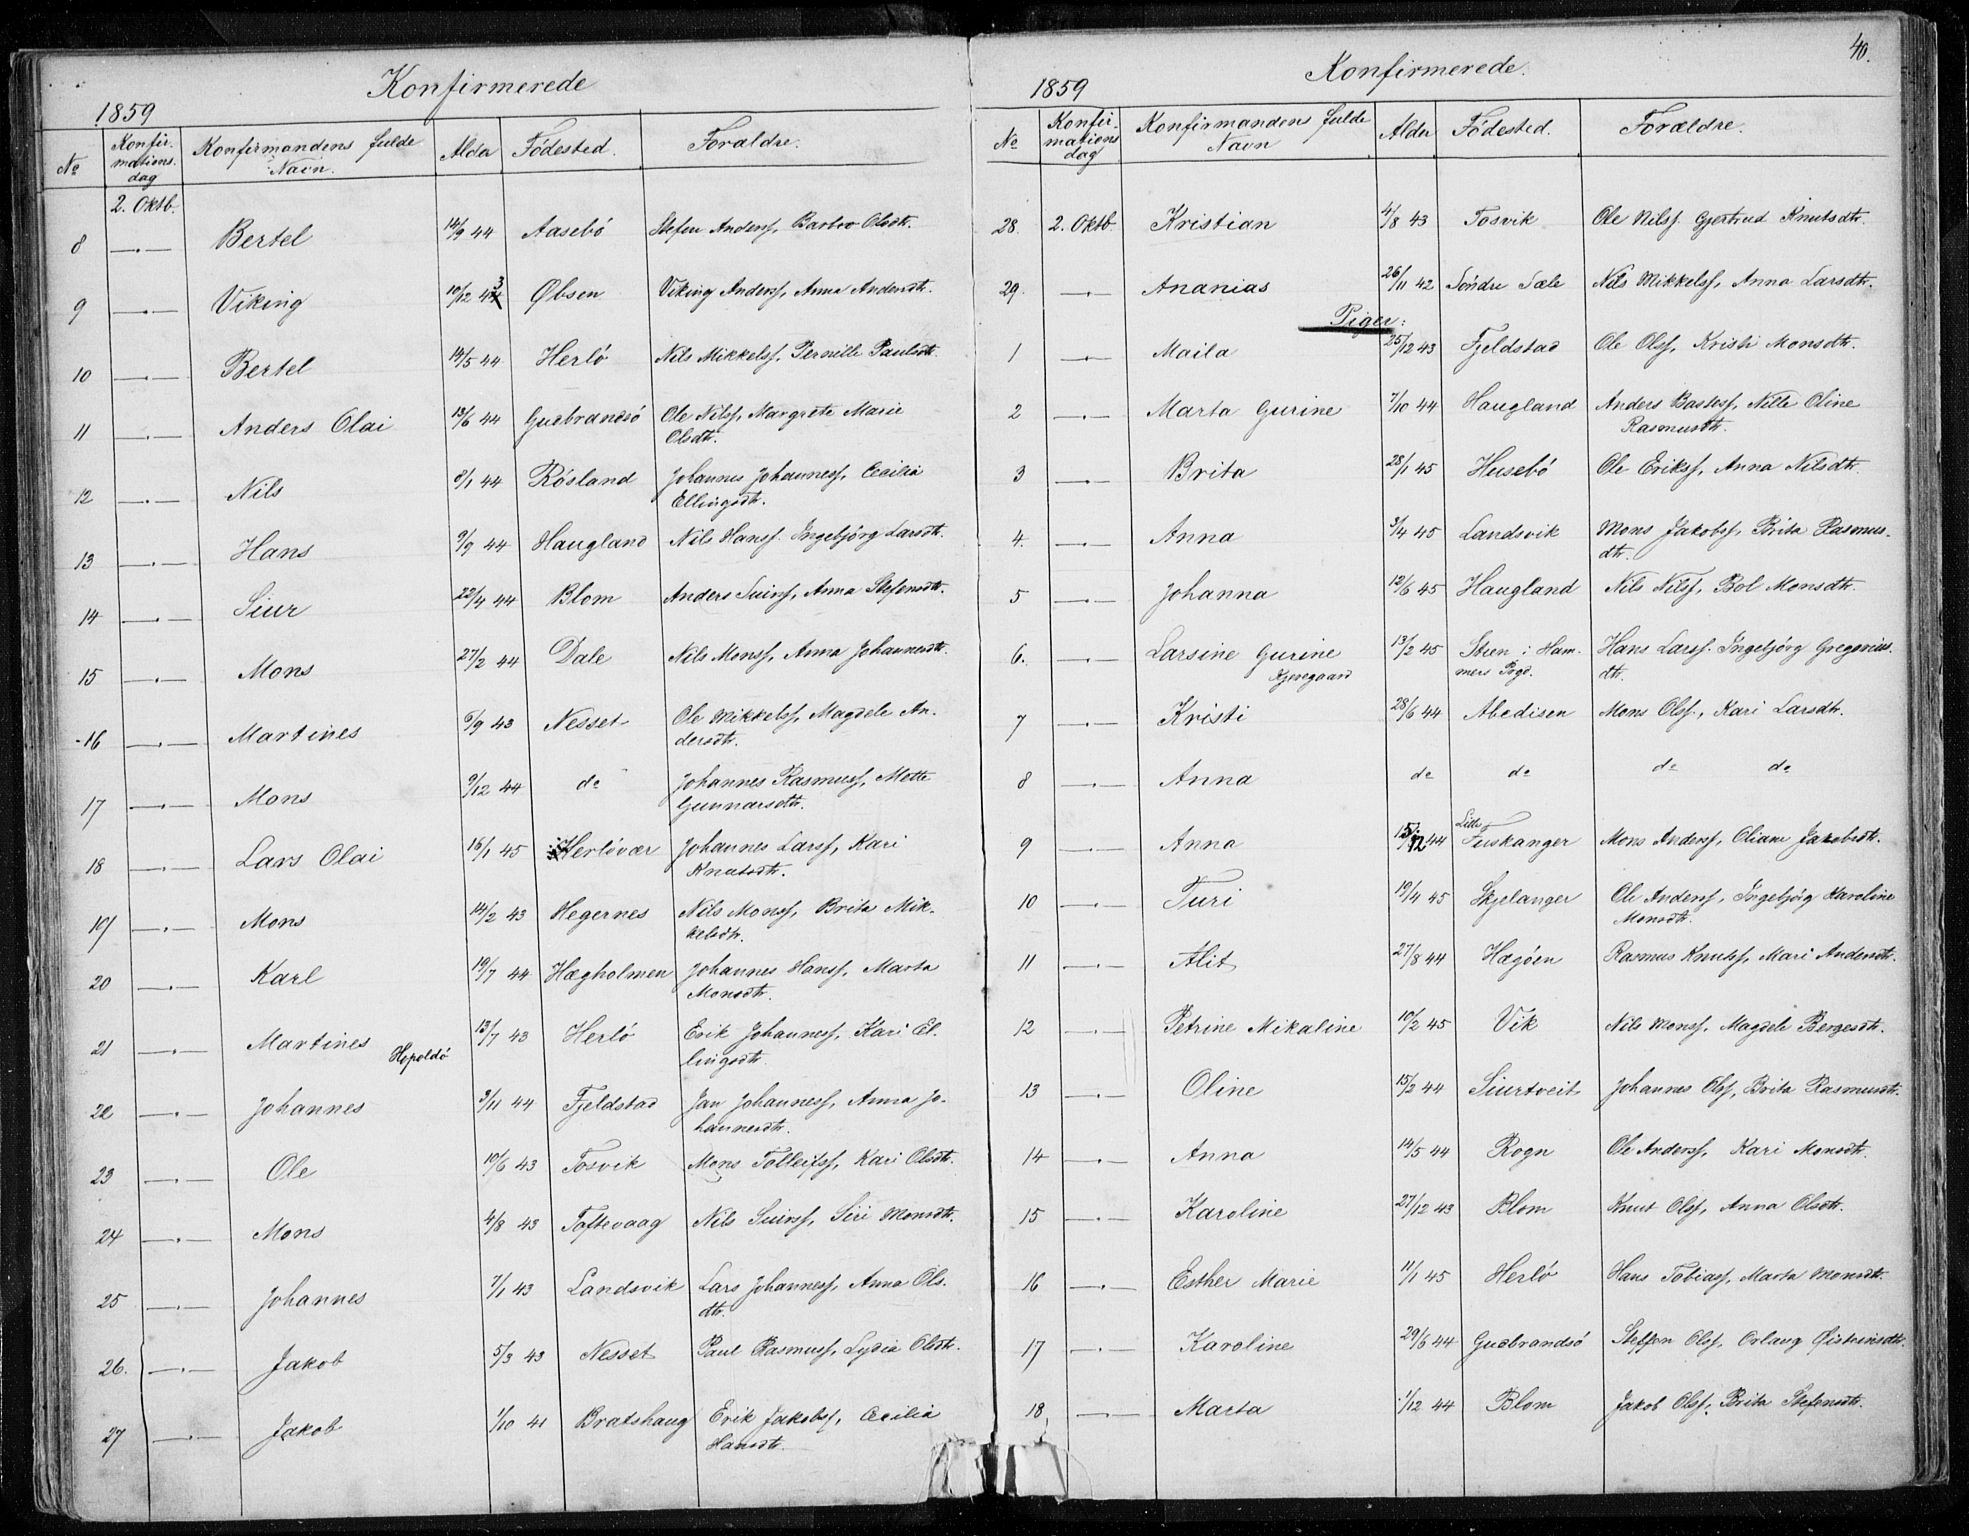 Konfirmerede
1859
No Konfir-mations dag Konfirmandens fulde Navn. Alder Fødested. Forældre.
2. Oktb.
8 —.— Bertel 14/9 44 Aasebö Stefen Andersf, Barbro Olsdtr.
9 —.— Viking 10/12 43 Øbsen Viking Andersf, Anna Andersdtr.
10 —.— Bertel 14/5 44 Herlö Nils Mikkelsf, Pernille Paulsdtr.
11 —.— Anders Olai 13/6 44 Gudbrandsö Ole Nilsf, Margrete Marie
Olsdtr.
12 —.— Nils 8/1 44 Rösland Johannes Johannesf, Cecilia
Ellingsdtr.
13 —.— Hans 9/9 44 Haugland Nils Hansf. Ingebjörg Larsdtr.
14 —.— Siur 22/4 44 Blom Anders Siursf, Anna Stefensdtr.
15 —.— Mons 27/2 44 Dale Nils Monsf, Anna Johannesdtr.
16 —.— Martines 6/9 43 Nesset Ole Mikkelsf, Magdele An-
dersdtr.
17 —.— Mons 9/12 44 do Johannes Rasmusf, Mette
Gunnarsdtr.
18 Lars Olai 16/1 45 Herlövær Johannes Larsf, Kari
Knutsdtr.
19 —.— Mons 14/2 43 Hegernes Nils Monsf, Brita Mik-
kelsdtr.
20 —.— Karl 19/7 44 Hægholmen Johannes Hansf, Marta
Monsdtr.
21 —.— Martines 13/7 43 Herlö Erik Johannesf, Kari El-
Hopoldö lingsdtr
22 —.— Johannes 3/11 44 Fjeldstad Jan Johannesf, Anna Jo-
hannesdtr.
23 —.— Ole 10/6 43 Tosvik Mons Tolleifsf, Kari Olsdtr.
24 —.— Mons 4/8 43 Toftevaag Nils Siursf, Siri Monsdtr.
25 —.— Johannes 7/1 43 Landsvik Lars Johannesf, Anna Ols-
dtr.
26. —.— Jakob 5/3 43 Nesset Paul Rasmusf, Lydia Olsdtr.
27 —.— Jakob 1/10 41 Bratshaug Erik Jakobsf, Cecilia
Hansdtr.
40.
Konfirmerede.
1859
No Konfir-mations dag Konfirmandens fulde Navn Alder Fødested. Forældre.
28. 2. Oktb. Kristian 4/8 43 Tosvik Ole Nilsf. Gjertrud Knutsdtr.
29. —.— Ananias 26/11 42 Söndre Sæle Nils Mikkelsf, Anna Larsdtr.
Piger:
1 —.— Maila 25/12 43 Fjeldstad Ole Olsf, Kristi Monsdtr.
2 —.— Marta Gurine 7/10 44 Haugland Anders Bastesf, Nille Oline
Rasmusdtr.
3 —.— Brita 28/1 45 Husebö Ole Eriksf, Anna Nilsdtr.
4. —.— Anna 3/4 45 Landsvik Mons Jakobsf, Brita Rasmus-
dtr.
5 —.— Johanna 12/6 45 Haugland Nils Nilsf, Bol Monsdtr.
6. —.— Larsine Gurine 13/2 45 Steen i Ham- Hans Larsf. Ingebjörg Gregorius-
Kjeregaard mers Prgd. dtr.
7 —.— Kristi 28/6 44 Abedisen Mons Olsf, Kari Larsdtr.
8 —.— Anna do do do do
9 —.— Anna 15/12 44 Lille Fuskanger Mons Andersf, Oliane Jakobsdtr.
10 —.— Turi 19/4 45 Skjelanger Ole Andersf, Ingebjörg Karoline
Monsdtr.
11 —.— Alit 27/8 44 Hægöen Rasmus Knutsf, Mari Andersdtr.
12 —.— Petrine Mikaline 10/2 45 Vik Nils Monsf, Magdele Bergesdtr.
13 —.— Oline 15/2 44 Siurtveit Johannes Olsf, Brita Rasmusdtr.
14 —.— Anna 14/5 44 Rogn Ole Andersf, Kari Monsdtr.
15 —.— Karoline 27/12 43 Blom Knut Olsf, Anna Olsdtr.
16 —.— Esther Marie 11/1 45 Herlö Hans Tobiasf, Marta Monsdtr.
17 —.— Karoline 29/6 44 Gudbrandsö Steffen Olsf, Orlaug Øisteinsdtr.
18 —.— Marta 1/12 44 Blom Jakob Olsf, Brita Stefensdtr.